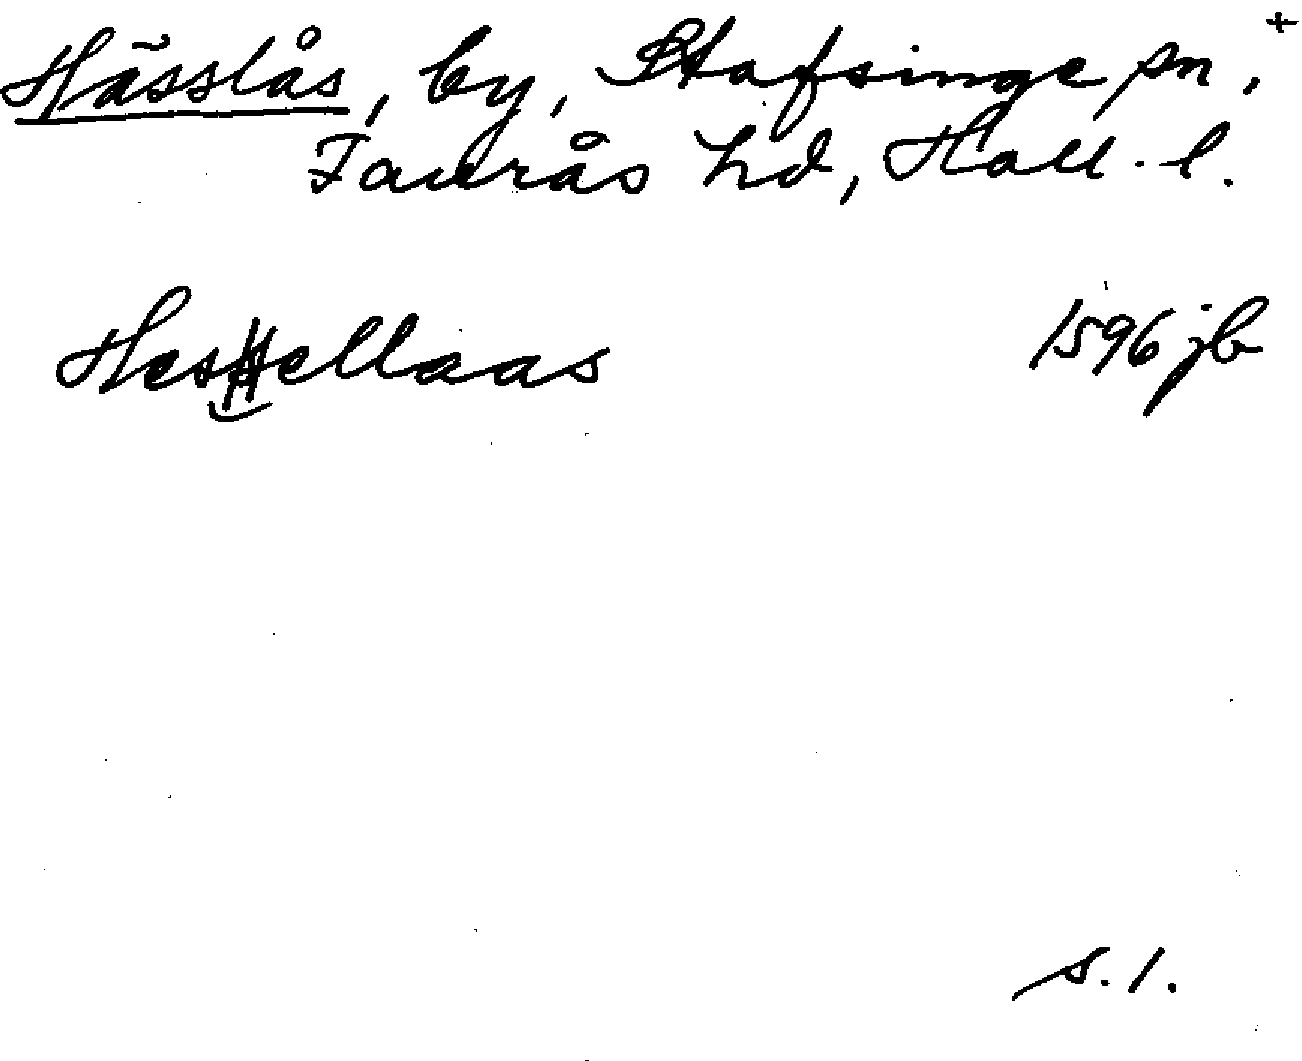 Hässlås, by, Stafsinge sn, +
Faurås hd, Hall. l.
Hessellaas 1596 jb
s. 1.